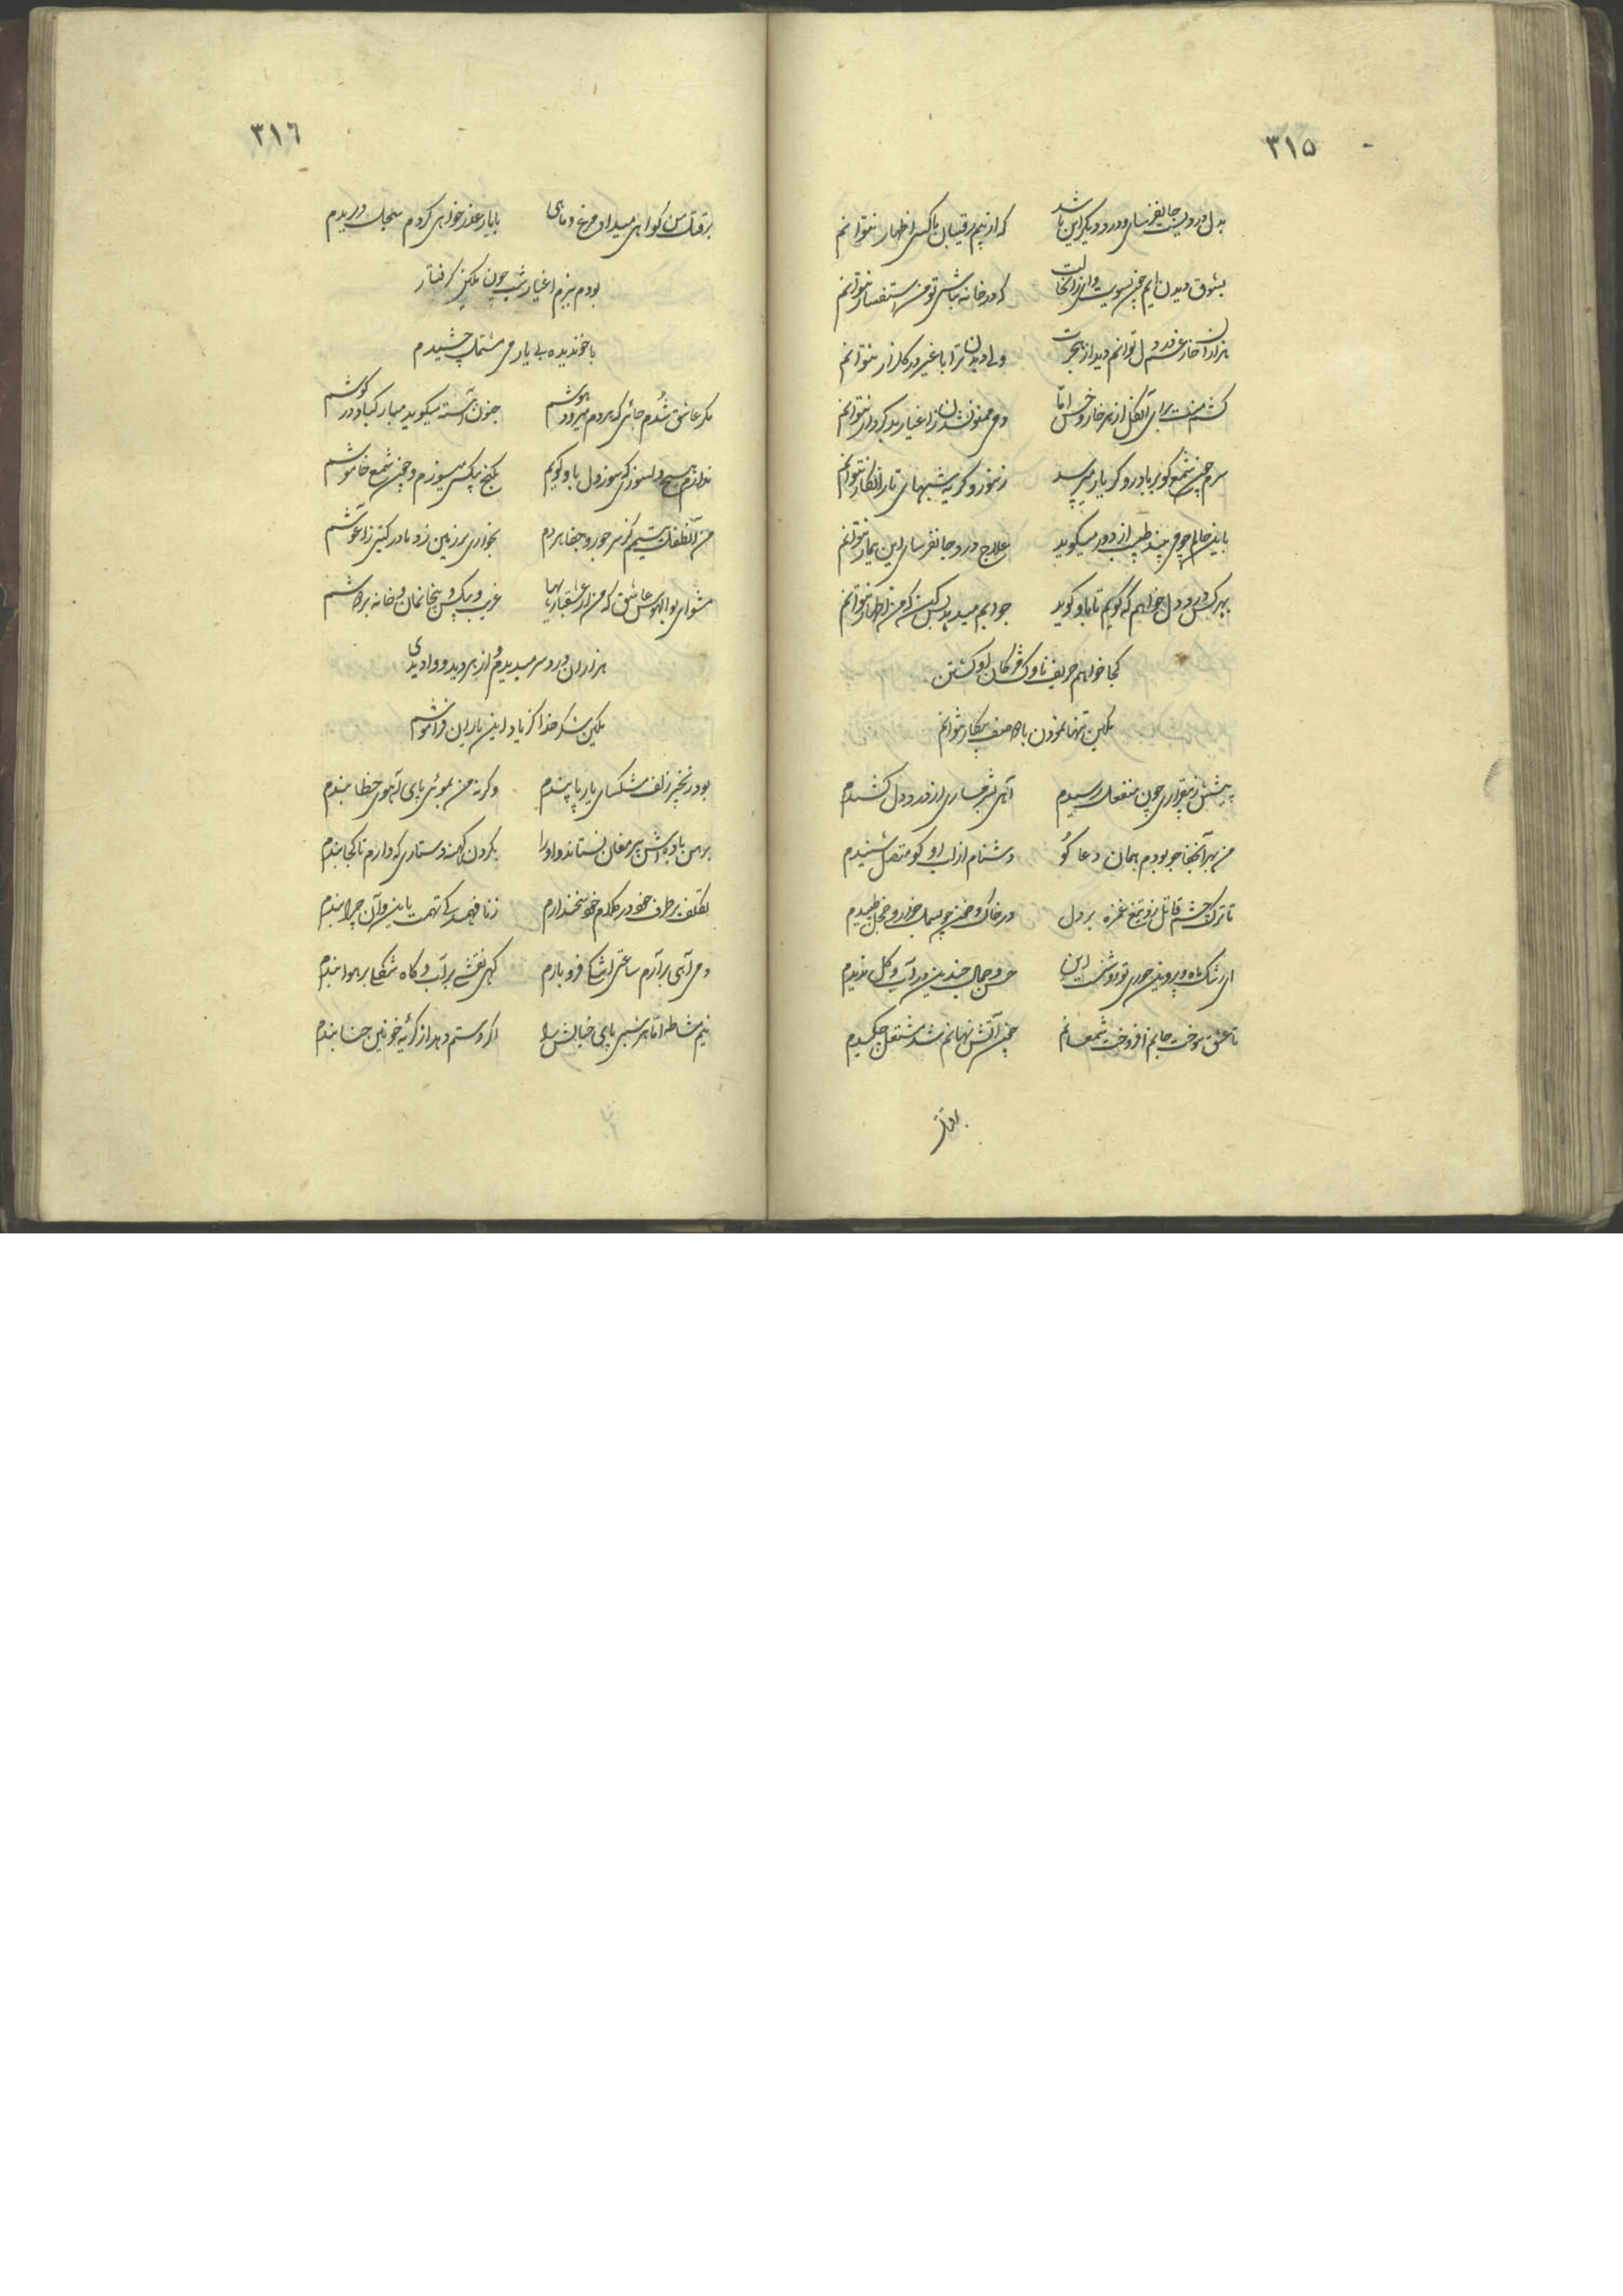 ۳۱۵
بدل دردیست جانفرسای و درد دیگر این باشد که از بیم رقیبان با کسی اظهار نتوانم
بشوق دیدن ایم چون بسویت وای زان حالت که در خانه نباشی تو من استفسار نتوانم
هزاران خار غم در دل توانم دید از هجرت ولی دیدن ترا با غیر در گلزار نتوانم
کشم منت برای آن گل از هر خار و خس اما دمی ممنون شدن ز اغیار بد کردار نتوانم
سرم چون شمع گو بر باد رو گر یار می پرسد ز سوز و گریه شبهای تار انکار نتوانم
باین حالم چو می بیند طبیب از دور میگوید علاج درد جانفرسای این بیمار نتوانم
بهر کس درد دل خواهم که گویم تا باو گوید جوابم میدهد بس کن که من اظهار نتوانم
کجا خواهم حریف ناوک مژگان او گشتن
مکین تنها نمودن با دو صف پیکار نتوانم
به پیشش ز بیقراری چون منفعل رسیدم آهی بشرمساری از درد دل کشیدم
من بهر آن جفا جو بودم همان دعا گو دشنام از لب او گو متصل شنیدم
تا ترک چشم قاتل زد تیغ غمزه بر دل در خاک و خون چو بسمل خوار و خجل طپیدم
ای رشک ماه و پروین حوری تو راست این حسن و جمال چندین در آب و گل ندیدم
تا عشق سوخت جانم افروخت شمع سانم چون آتش نهانم شد مشتعل چکیدم
بر قتل
۳۱٦
بر قتل من گواهی میداد مرغ و ماهی با یار عذر خواهی کردم سجل دریدم
بودم ببزم اغیار شب چون مکین گرفتار
ناخوندیده بی یار می مشتمل چشیدم
مگر عاشق شدم جائی که هر دم میرود هوشم جنون آهسته میگوید مبارکباد در گوشم
ندارم هیچ دلسوزی که سوز دل باو گویم بکنج بیکسی میسوزم و چون شمع خاموشم
من آن طفل یتیمم کز سر جور و جفا هر دم بخواری بر زمین زد مادر گیتی ز آغوشم
مشو ای بوالهوس عاشق که من از عشقبازیها غریب و بیکس و بیخانمان و خانه بر دوشم
هزاران درد سر میدیدم از هر دید و وادیدی
مکین شکر خدا کز یاد این یاران فراموشم
بود زنجیر زلف مشکسای یار پا بندم وگرنه من بموئی پای آهوی خطا بندم
برهن باده اش پیر مغان نستاند او را بگردن کهنه دستاری که دارم تا کجا بندم
تکلف بر طرف خود در کلام خود سخن دارم ز نافهمیدگی تهمت باین و آن چرا بندم
دمی آهی بر آرم ساعتی اشکی فرو بارم گهی نقشی بر آب و گاه شکلی بر هوا بندم
نیم مشاطه اما هر شبی پای خیالش را اگر دستم دهد از گریه خونین حنا بندم